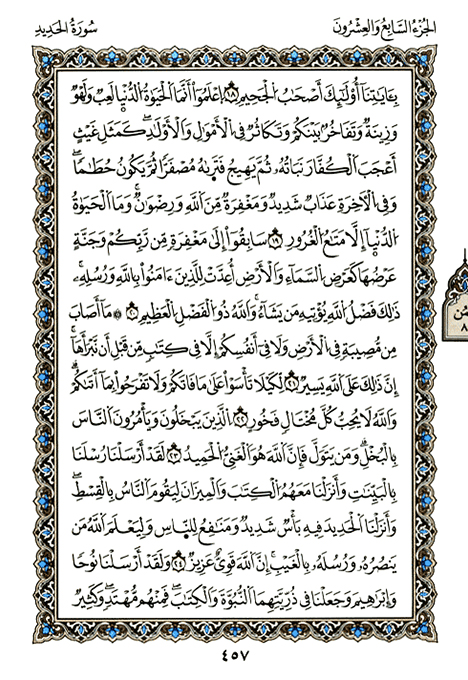 سُورَةُ الحَدِيدِ الجُزْءُ السَّابِعُ وَالعِشْرُونَ
بِـَٔايَٰتِنَآ أُوْلَٰٓئِكَ أَصْحَٰبُ الْجَحِيمِ ١٨ اِعْلَمُوٓاْ أَنَّمَا الْحَيَوٰةُ الدُّنْيَا لَعِبٌ وَلَهْوٌ
وَزِينَةٌ وَتَفَاخُرٌ بَيْنَكُمْ وَتَكَاثُرٌ فِي الْأَمْوَٰلِ وَالْأَوْلَٰدِ كَمَثَلِ غَيْثٍ
أَعْجَبَ الْكُفَّارَ نَبَاتُهُۥ ثُمَّ يَهِيجُ فَتَرَىٰهُ مُصْفَرًّا ثُمَّ يَكُونُ حُطَٰمًا
وَفِي الْأٓخِرَةِ عَذَابٌ شَدِيدٌ وَمَغْفِرَةٌ مِّنَ اللَّهِ وَرِضْوَٰنٌ وَمَا الْحَيَوٰةُ
الدُّنْيَآ إِلَّا مَتَٰعُ الْغُرُورِ ١٩ سَابِقُوٓاْ إِلَىٰ مَغْفِرَةٍ مِّن رَّبِّكُمْ وَجَنَّةٍ
عَرْضُهَا كَعَرْضِ السَّمَآءِ وَالْأَرْضِ أُعِدَّتْ لِلَّذِينَ ءَامَنُواْ بِاللَّهِ وَرُسُلِهِۦ
ذَٰلِكَ فَضْلُ اللَّهِ يُؤْتِيهِ مَن يَشَآءُ وَاللَّهُ ذُو الْفَضْلِ الْعَظِيمِ ٢٠ ۞ مَآ أَصَابَ
مِن مُّصِيبَةٍ فِي الْأَرْضِ وَلَا فِيٓ أَنفُسِكُمْ إِلَّا فِي كِتَٰبٍ مِّن قَبْلِ أَن نَّبْرَأَهَآ
إِنَّ ذَٰلِكَ عَلَى اللَّهِ يَسِيرٌ ٢١ لِّكَيْلَا تَأْسَوْاْ عَلَىٰ مَا فَاتَكُمْ وَلَا تَفْرَحُواْ بِمَآ أَتَىٰكُمْ
وَاللَّهُ لَا يُحِبُّ كُلَّ مُخْتَالٍ فَخُورٍ ٢٢ الَّذِينَ يَبْخَلُونَ وَيَأْمُرُونَ النَّاسَ
بِالْبُخْلِ وَمَن يَتَوَلَّ فَإِنَّ اللَّهَ هُوَ الْغَنِيُّ الْحَمِيدُ ٢٣ لَقَدْ أَرْسَلْنَا رُسْلَنَا
بِالْبَيِّنَٰتِ وَأَنزَلْنَا مَعَهُمُ الْكِتَٰبَ وَالْمِيزَانَ لِيَقُومَ النَّاسُ بِالْقِسْطِ
وَأَنزَلْنَا الْحَدِيدَ فِيهِ بَأْسٌ شَدِيدٌ وَمَنَٰفِعُ لِلنَّاسِ وَلِيَعْلَمَ اللَّهُ مَن
يَنصُرُهُۥ وَرُسُلَهُۥ بِالْغَيْبِ إِنَّ اللَّهَ قَوِيٌّ عَزِيزٌ ٢٤ وَلَقَدْ أَرْسَلْنَا نُوحًا
وَإِبْرَٰهِيمَ وَجَعَلْنَا فِي ذُرِّيَّتِهِمَا النُّبُوَّةَ وَالْكِتَٰبَ فَمِنْهُم مُّهْتَدٍ وَكَثِيرٌ
٤٥٧